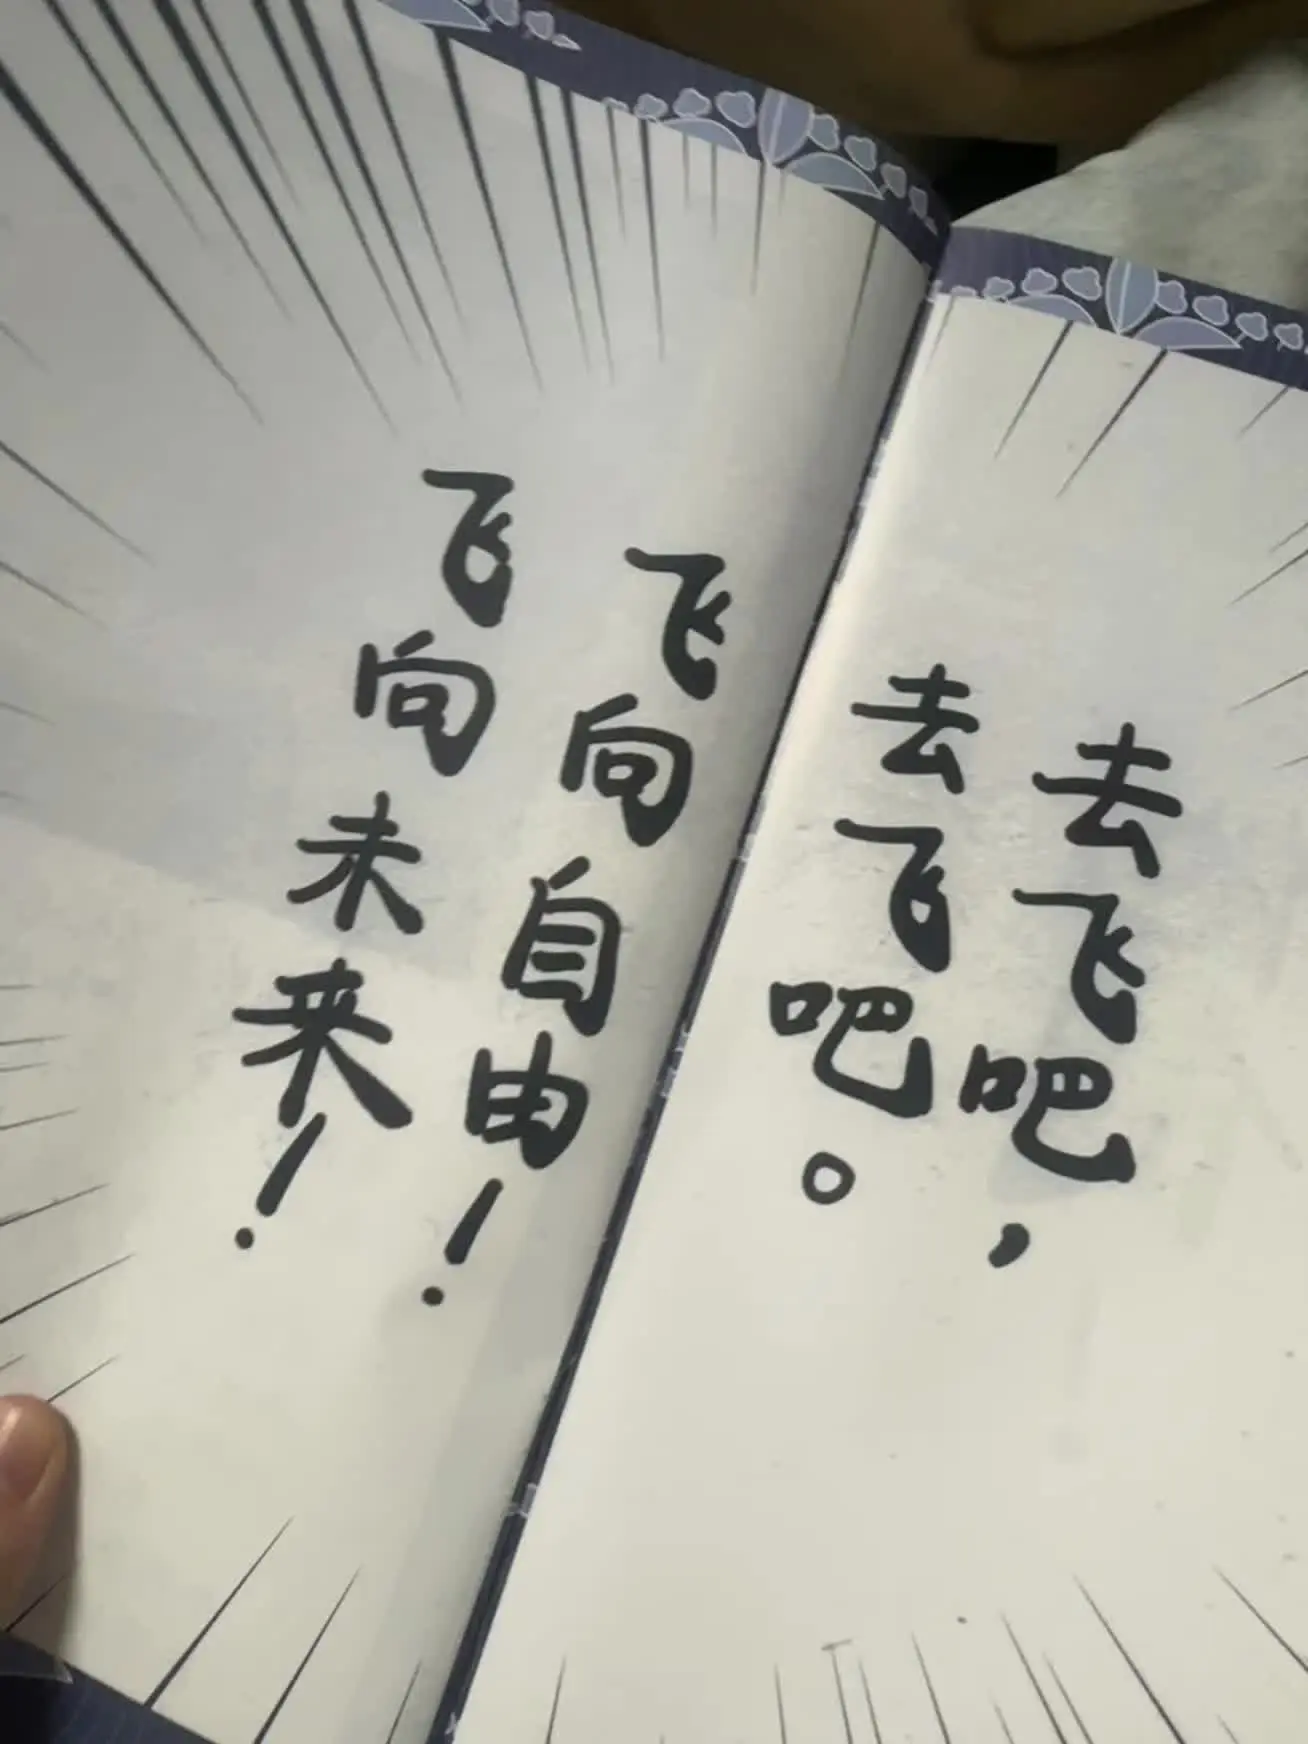 去飞吧，
去飞吧。
飞向自由！
飞向未来！